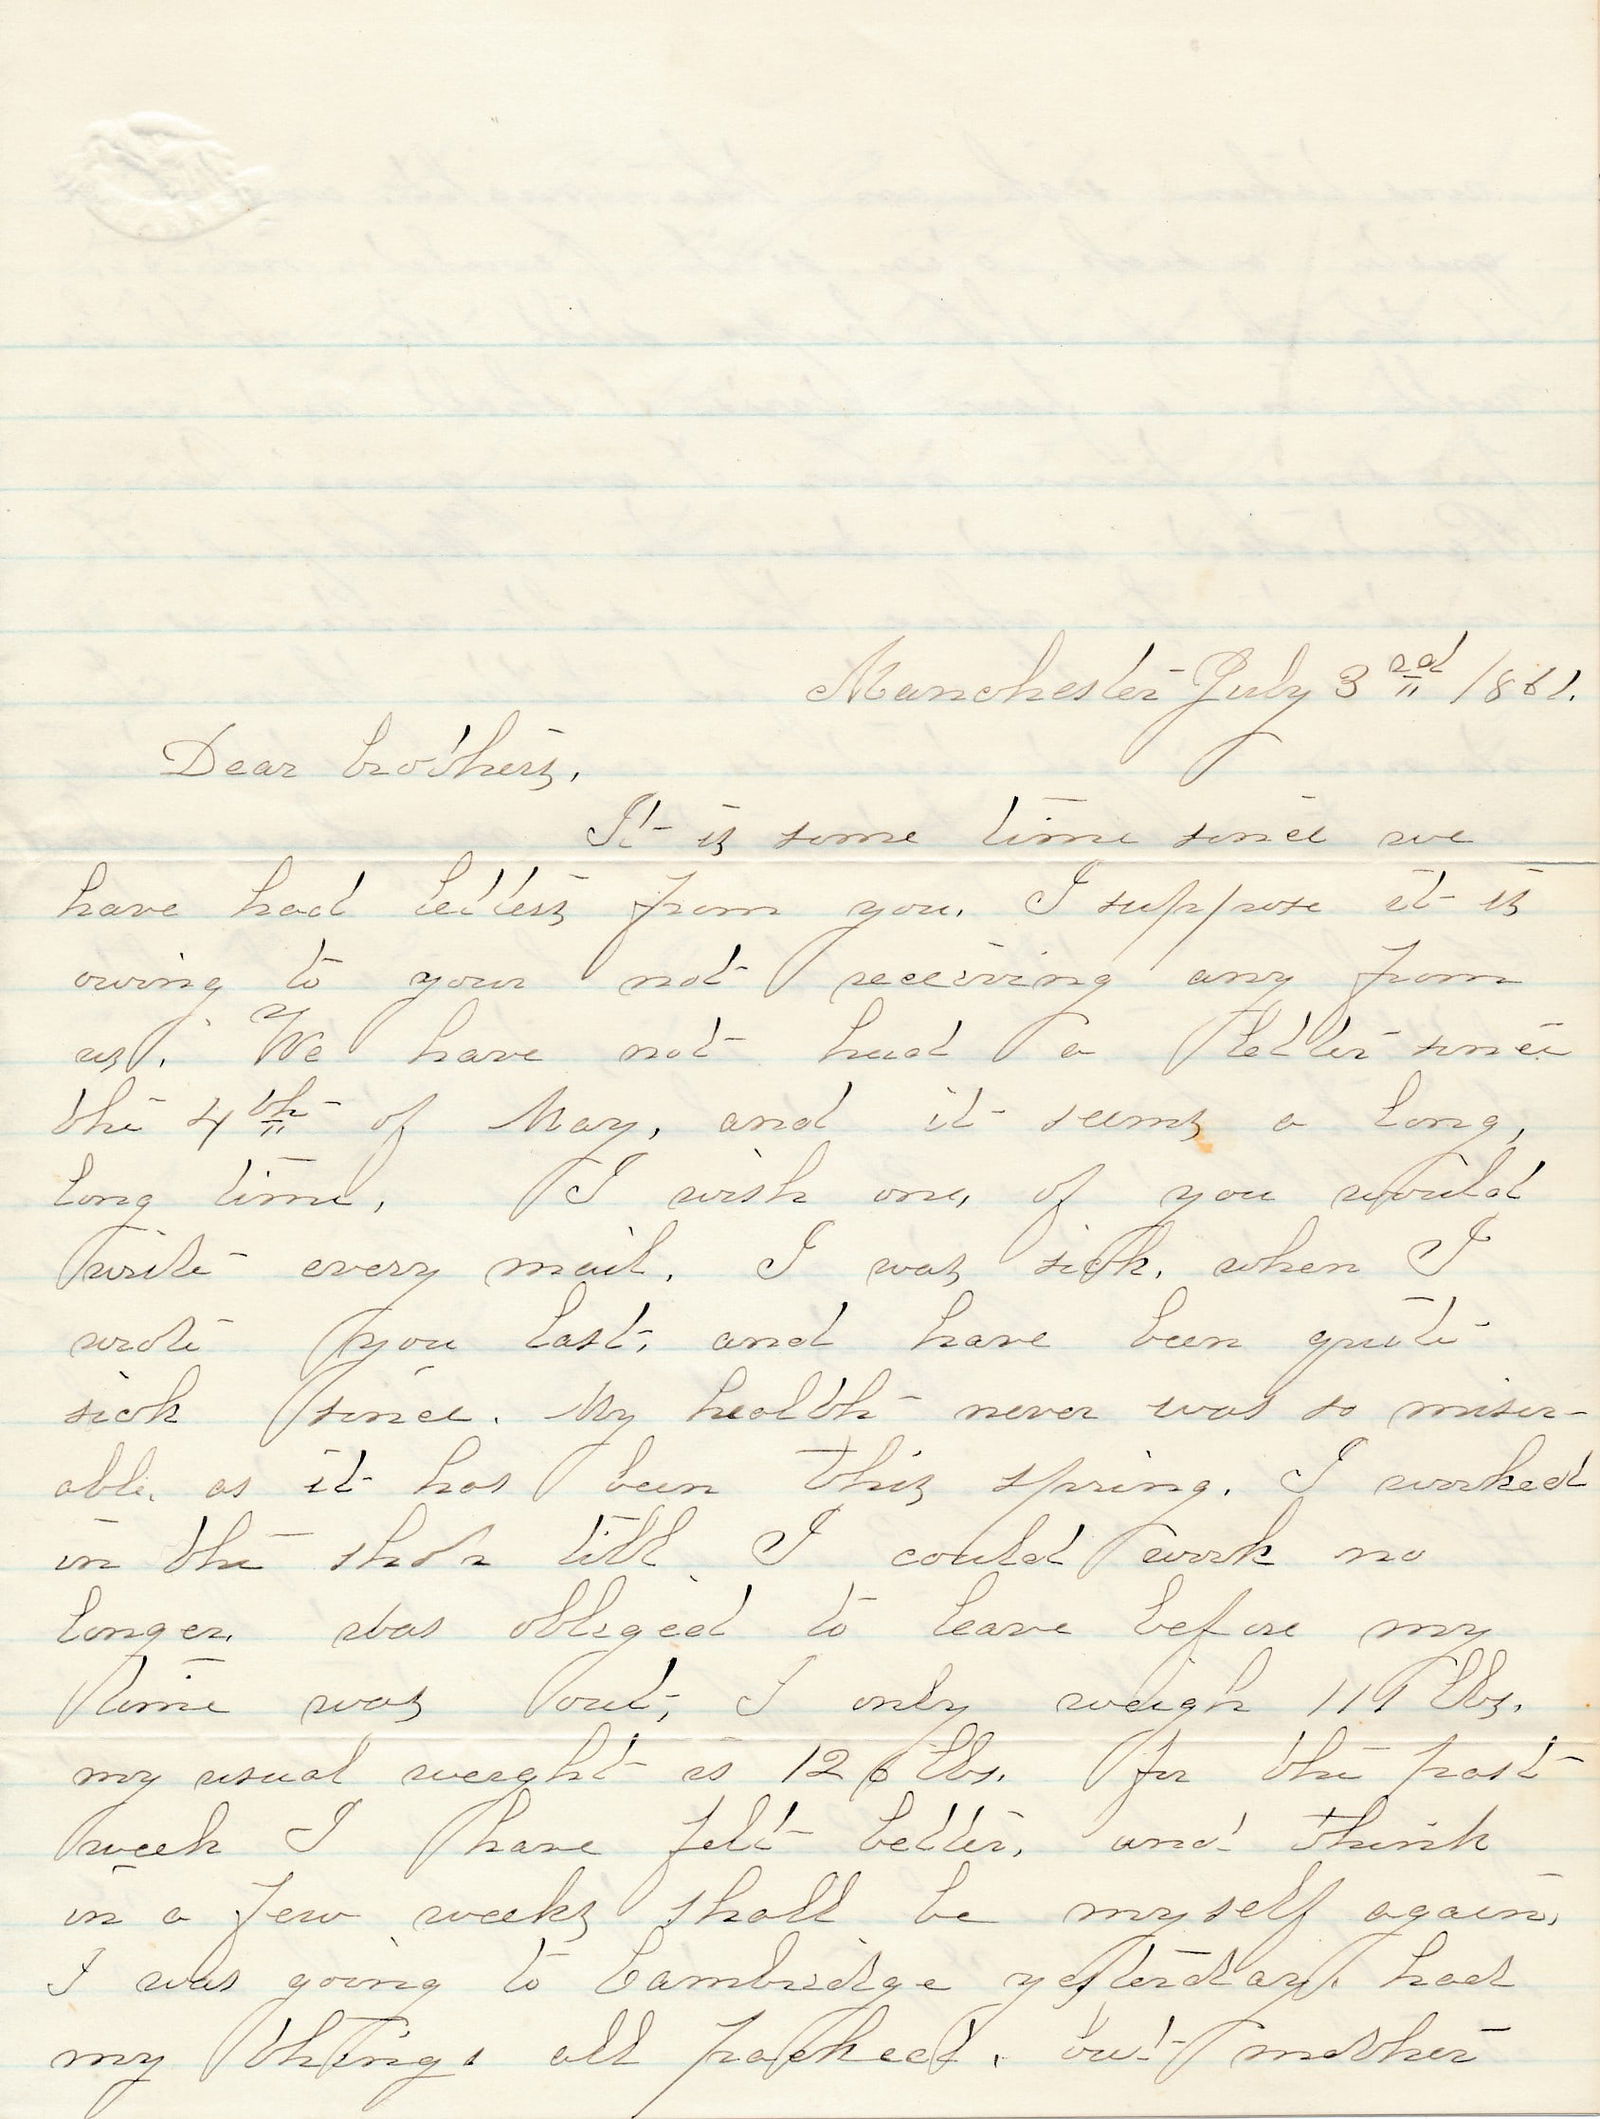 Manchester July 3rd 1861.
Dear brothers,
It is some time since we
have had letters from you. I suppose it is
owing to your not receiving any from
us. We have not had a letter since
the 4th of May, and it seems a long,
long time, I wish one, of you would
write every mail. I was sick, when I
wrote you last, and have been quite
sick since. My health never was so miser-
able, as it has been this spring. I worked
in the shop till I could work no
longer, was obliged to leave before my
time was out, I only weigh 119 lbs.
my usual weight is 126 lbs. for the past
week I have felt better, and think
in a few weeks shall be myself again,
I was going to Cambridge yesterday, had
my things all packed, but mother